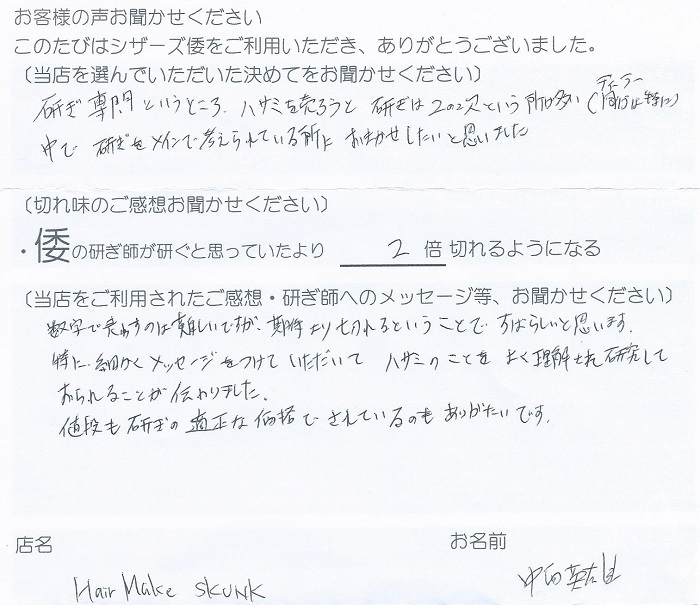 お客様の声お聞かせください
このたびはシザーズ倭をご利用いただき、ありがとうございました。
〔当店を選んでいただいた決めてをお聞かせください〕
ディーラー
研ぎ専門というところ。ハサミを売ろうと 研ぎは2の2次という所が多い(
中で 研ぎをメインで考えられている所に おまかせしたいと思いました
〔切れ味のご感想お聞かせください〕
・倭の研ぎ師が研ぐと思っていたより 2 倍 切れるようになる
〔当店をご利用されたご感想・研ぎ師へのメッセージ等、お聞かせください〕
数字で表わすのは難しいですが、期待より切れるということで すばらしいと思います。
特に 細かくメッセージをつけていただいて ハサミのことを よく理解 研究して
おられることが伝わりました。
値段も研ぎの適正な価格でされているのも ありがたいです。
店名
お名前
Hair Make SKUNK
中田